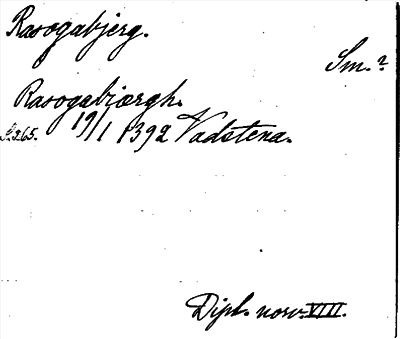 Rasogabjerg.
Sm.?
Rasogabiærgh.
S. 265. 19/1 1392 Vadstena.
Dipl. norv. VIII.